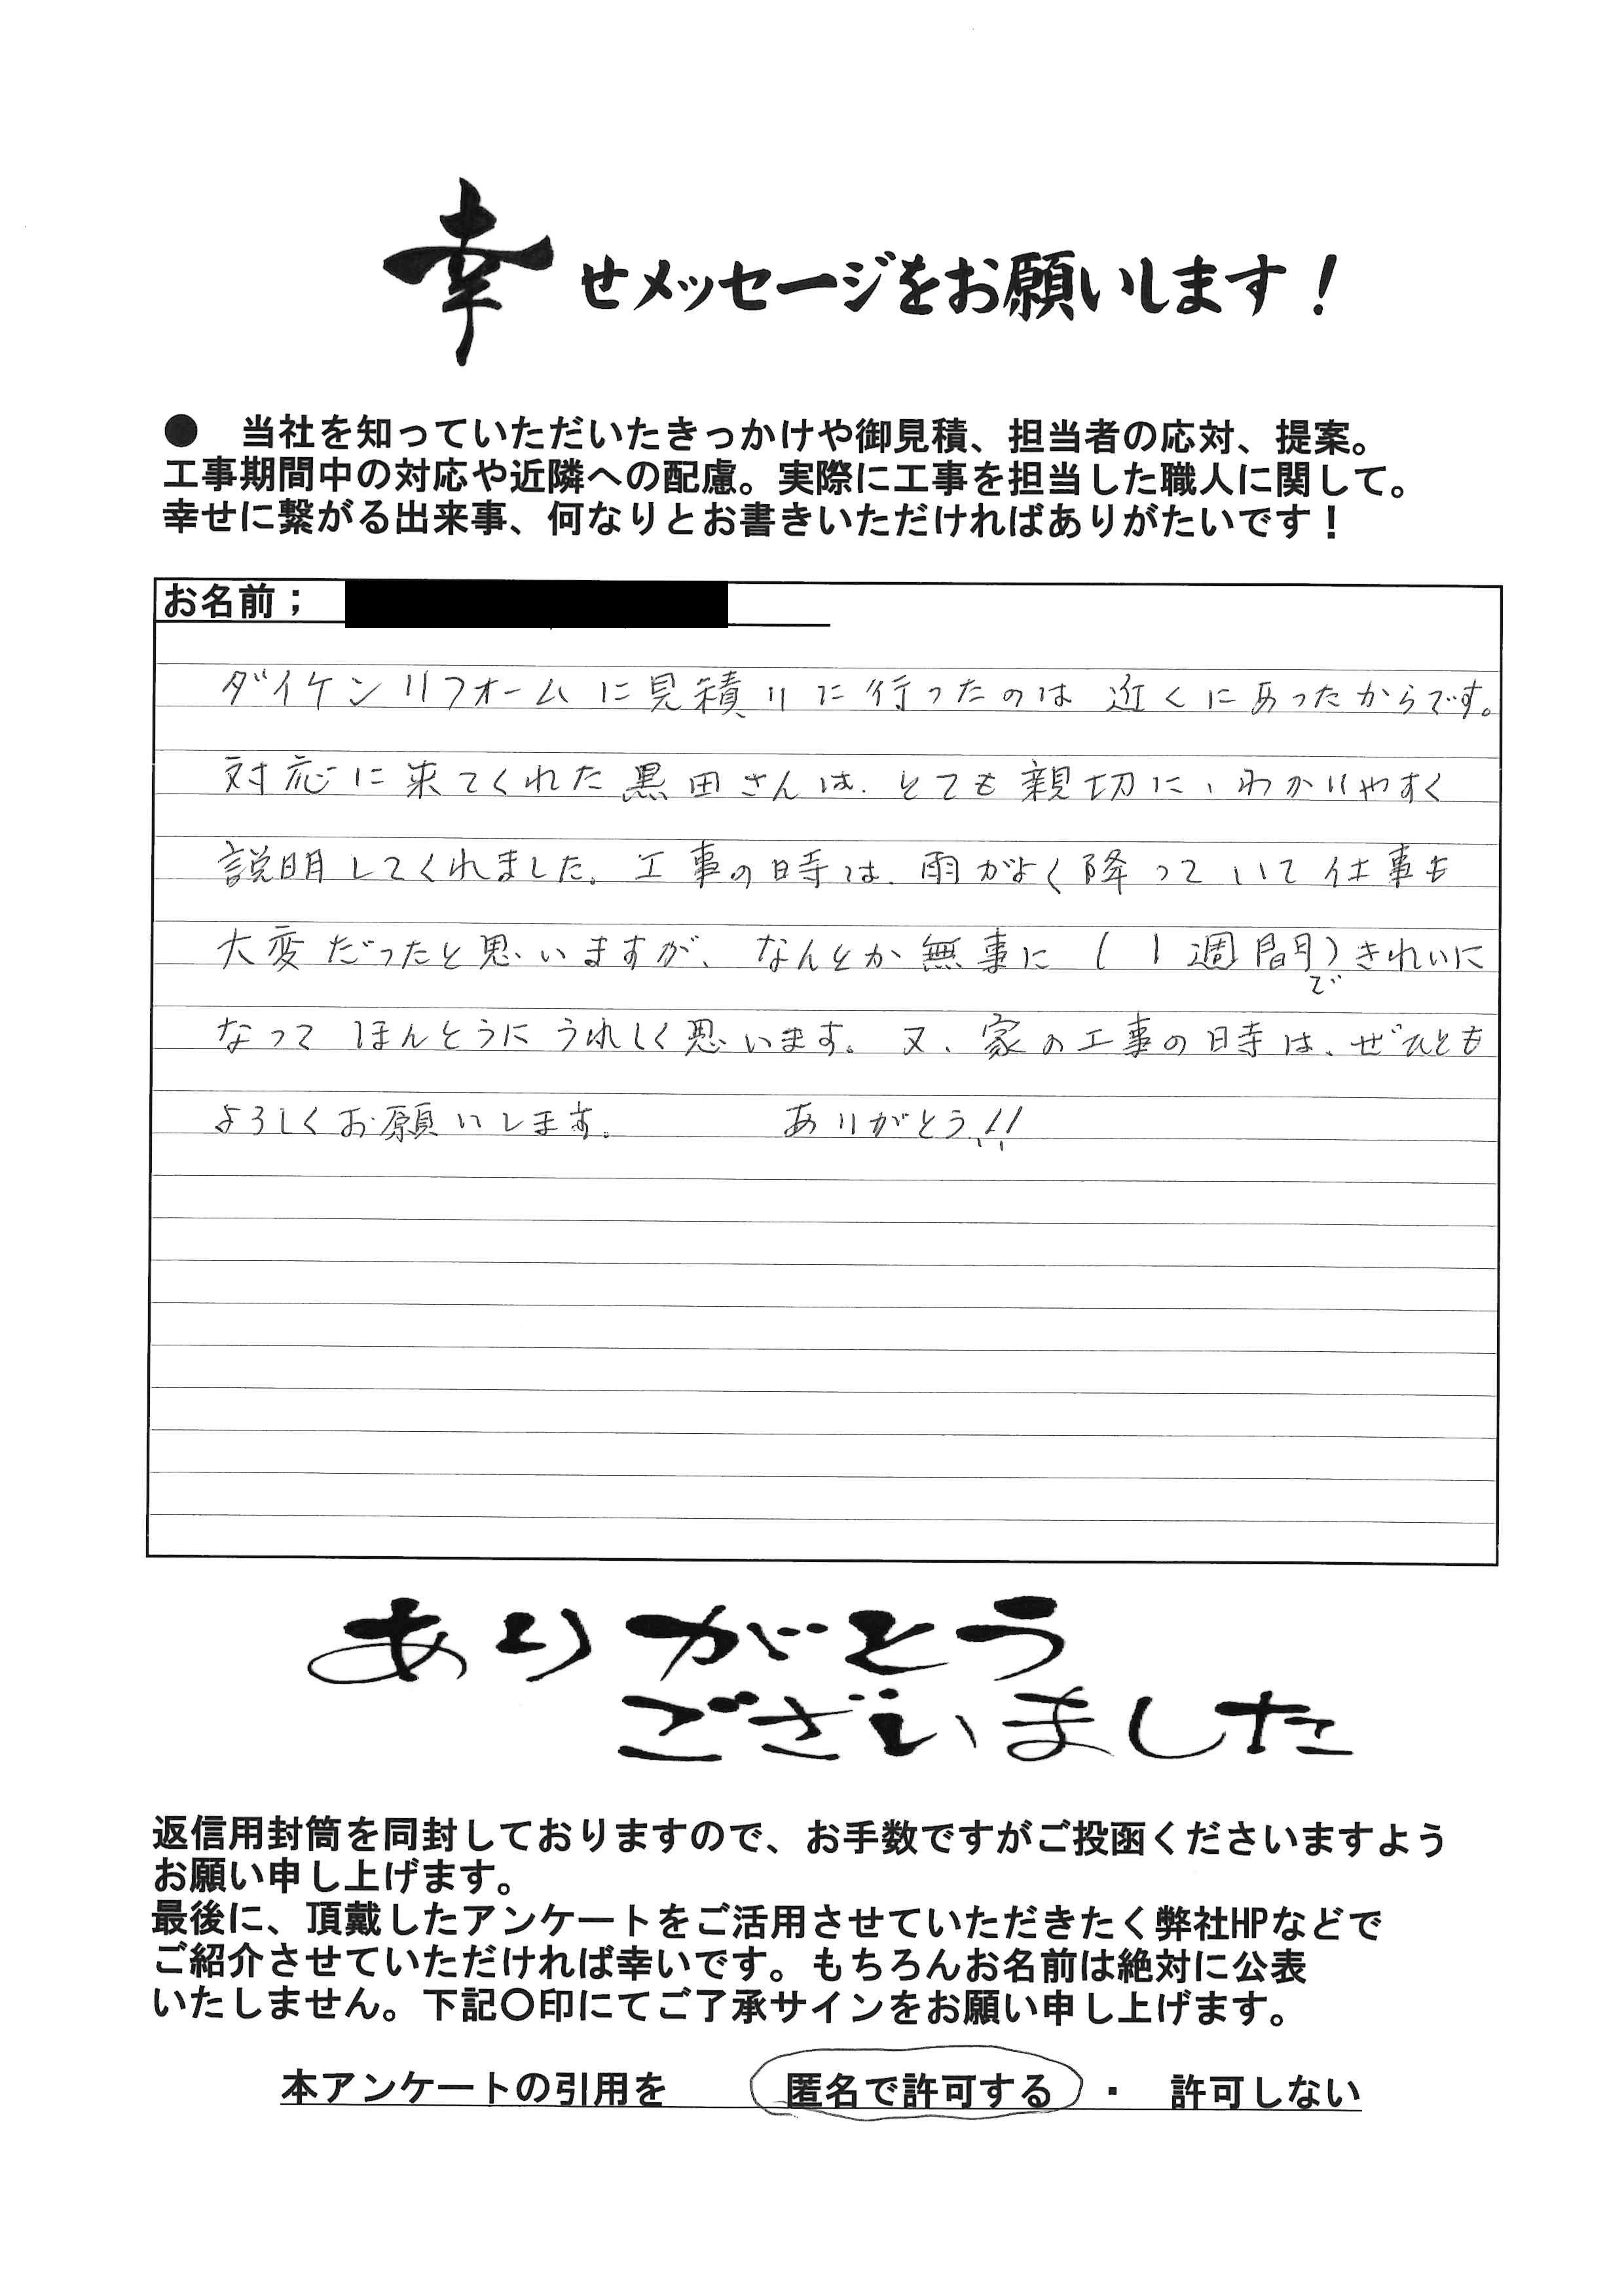 幸せメッセージをお願いします！
●　当社を知っていただいたきっかけや御見積、担当者の応対、提案。
工事期間中の対応や近隣への配慮。実際に工事を担当した職人に関して。
幸せに繋がる出来事、何なりとお書きいただければありがたいです！
お名前；
ダイケンリフォームに見積りに行ったのは近くにあったからです。
対応に来てくれた黒田さんは、とても親切に、わかりやすく
説明してくれました。工事の時は、雨がよく降っていて仕事も
大変だったと思いますが、なんとか無事に（1週間で）きれいに
なってほんとうにうれしく思います。又、家の工事の時は、ぜひとも
よろしくお願いします。　ありがとう!!
ありがとう
ございました
返信用封筒を同封しておりますので、お手数ですがご投函くださいますよう
お願い申し上げます。
最後に、頂戴したアンケートをご活用させていただきたく弊社HPなどで
ご紹介させていただければ幸いです。もちろんお名前は絶対に公表
いたしません。下記〇印にてご了承サインをお願い申し上げます。
本アンケートの引用を　匿名で許可する　・　許可しない